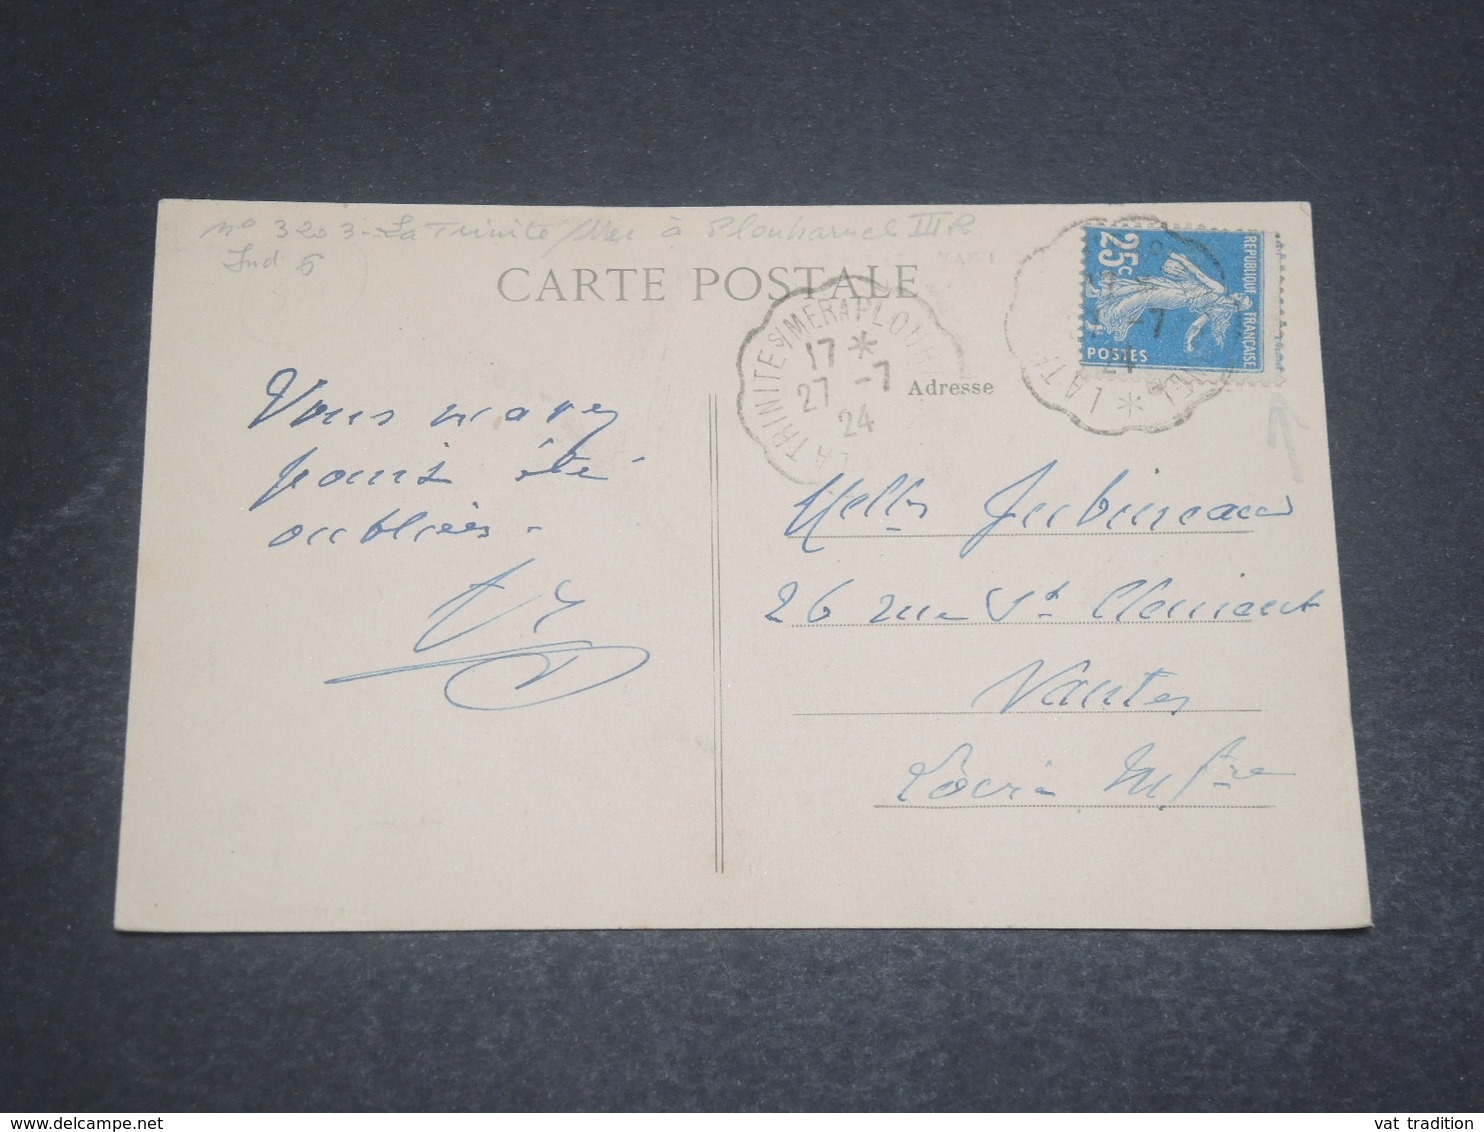 n° 3203 - La Trinité /Mer à Plouharnel III R
Ind 5
CARTE POSTALE
LA TRINITE S/MER A PLOUH
17 *
27 -7
24
25c
REPUBLIQUE FRANCAISE
POSTES
-7
24
LA TR
Adresse
Vous n'avez
jamais été
oubliées -
Melles Jubineau
26 rue St Clément
Nantes
Loire Infre
www.delcampe.net
vat tradition